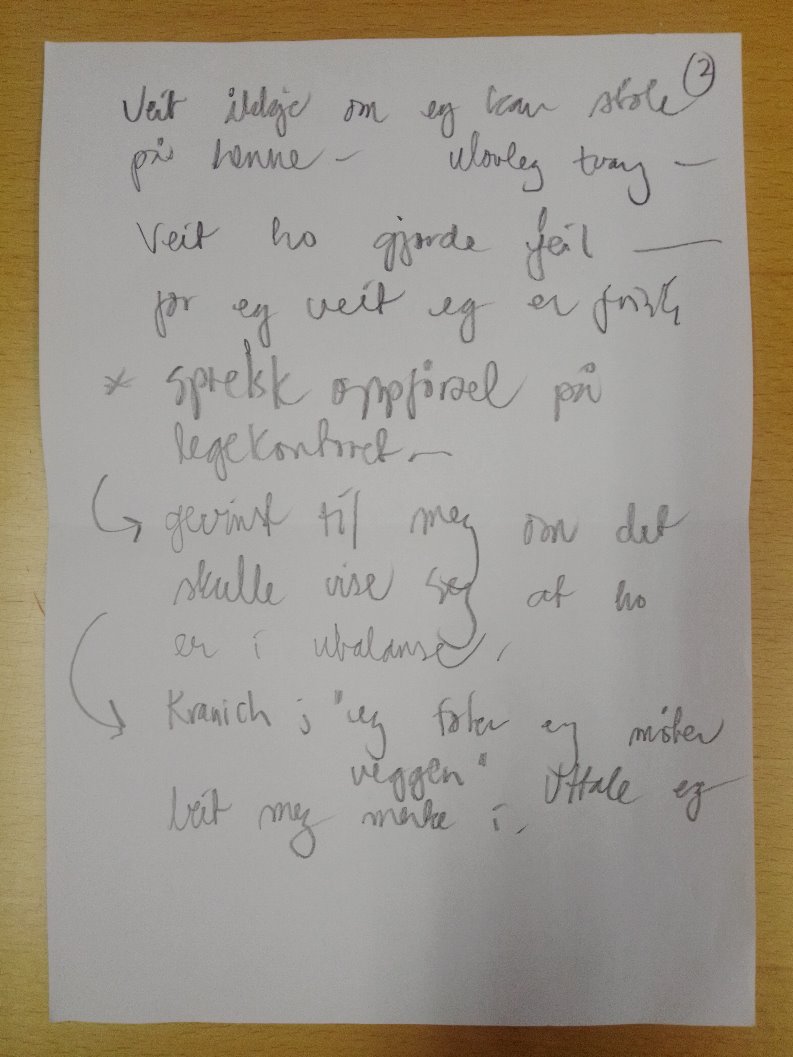 (2)
Veit ikkje om eg kan stole
på henne – ulovleg tvang –
Veit ho gjorde feil —
for eg veit eg er frisk
* sprelsk oppførsel på
legekontoret –
↳ gevinst til meg om det
skulle vise seg at ho
er i ubalanse,
↳ Kranich ; "eg føler eg møter
veggen" Uttale eg
beit meg merke i,